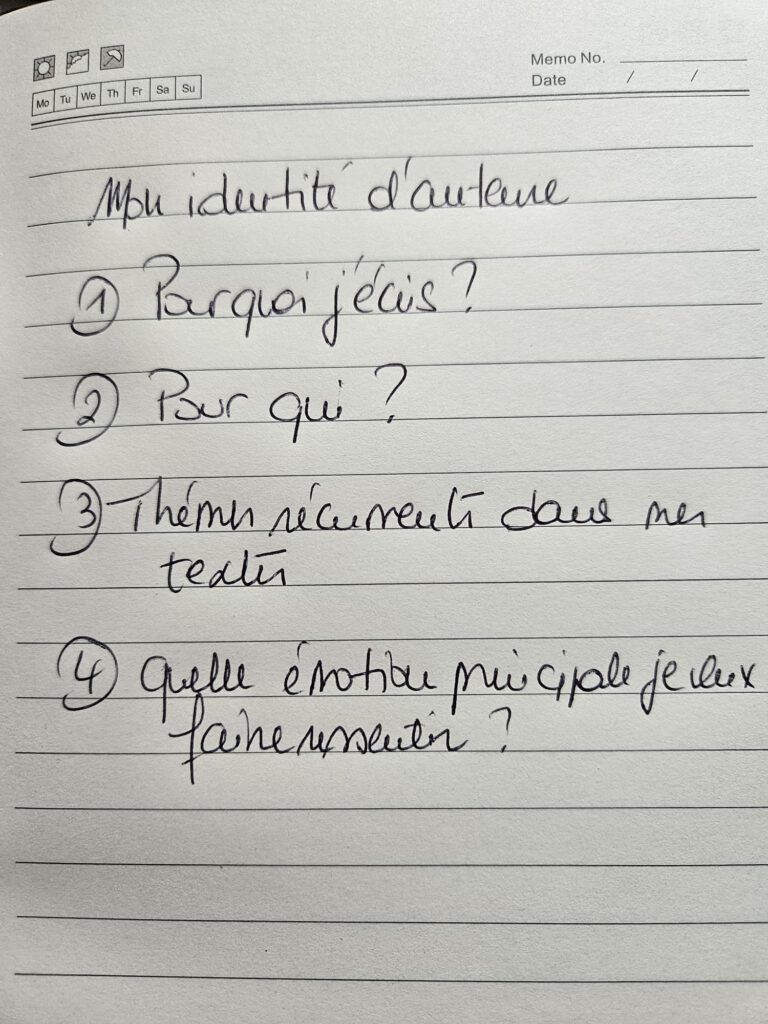 Memo No.
Date / /
Mo Tu We Th Fr Sa Su
Mon identité d'auteure
① Pourquoi j'écris ?
② Pour qui ?
③ Thèmes récurrents dans mes
textes
④ Quelle émotion principale je veux
faire ressentir ?